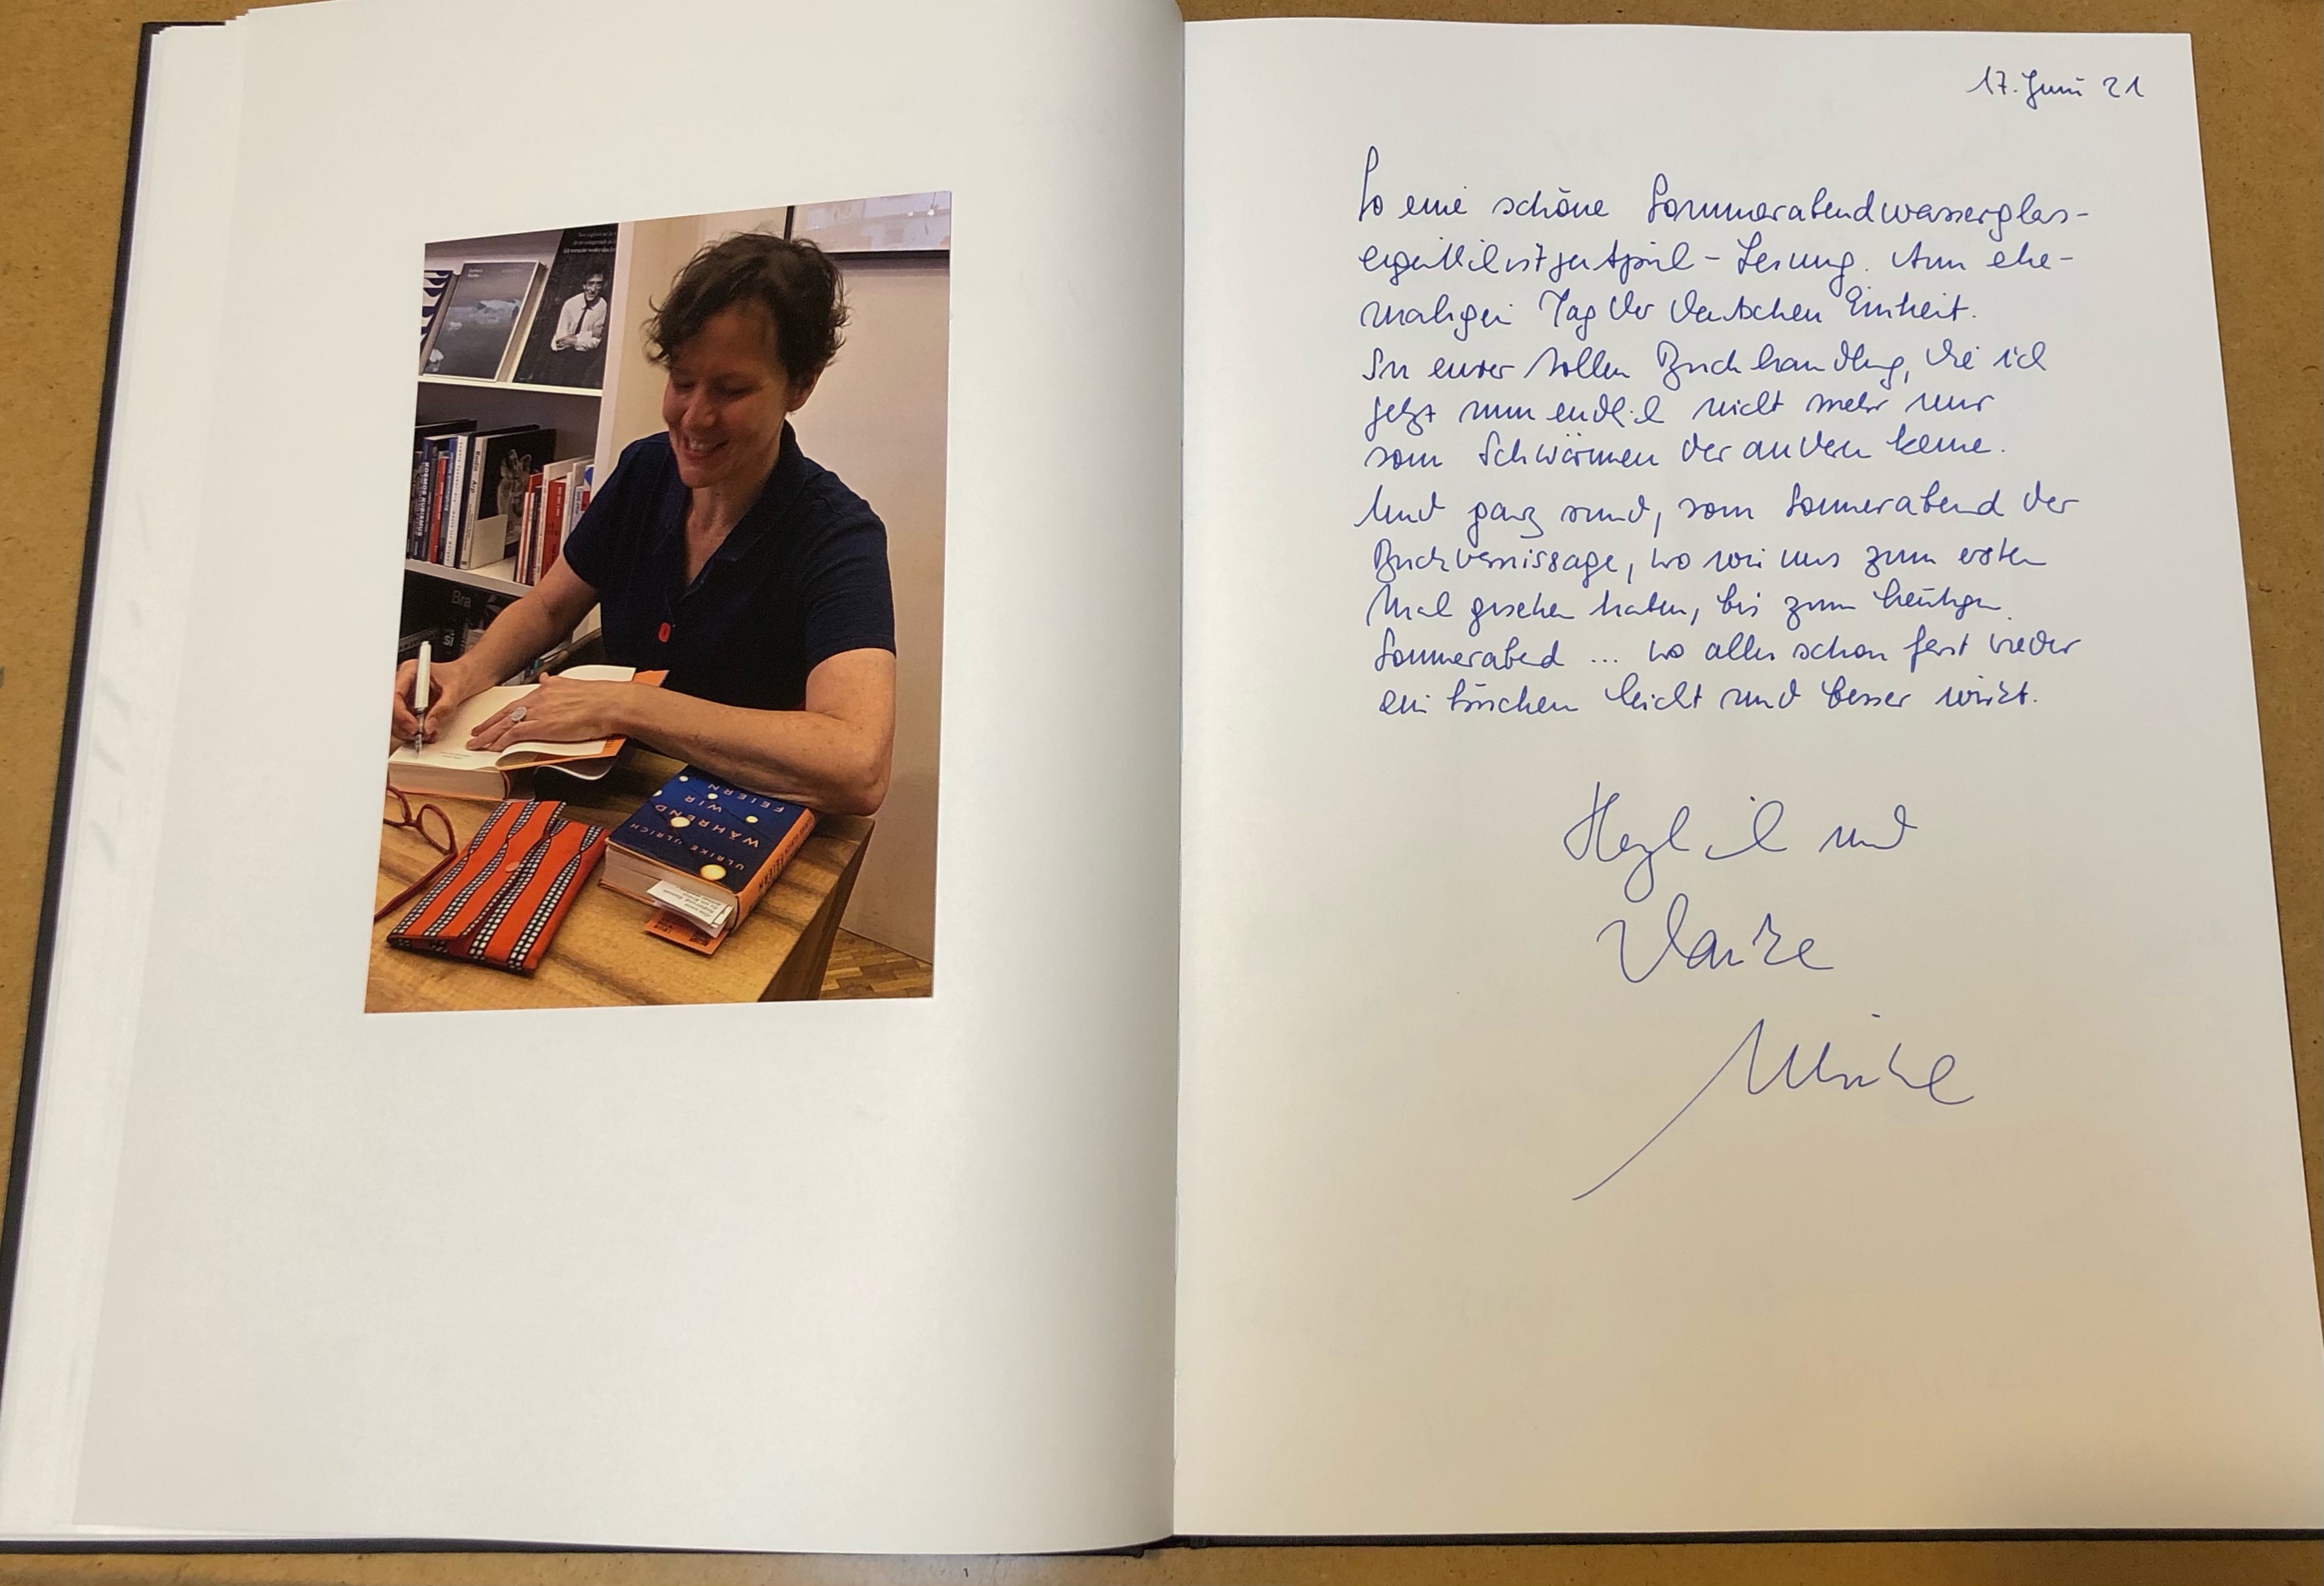 Bra
ULRIKE ULRICH
WÄHREND
WIR
FEIERN
17. Juni 21
So eine schöne Sommerabendwasserglas-
Lesung. Am ehe-
maligen Tag der deutschen Einheit.
In eurer tollen Buchhandlung, die ich
jetzt nun endlich nicht mehr nur
vom Schwärmen der andern kenne.
Und ganz rund, vom Sommerabend der
Buchvernissage, wo wir uns zum ersten
Mal gesehen haben, bis zum heutigen
Sommerabend ... wo alles schon fast wieder
ein bisschen leicht und besser wirkt.
Herzlich und
Danke
Ulrike